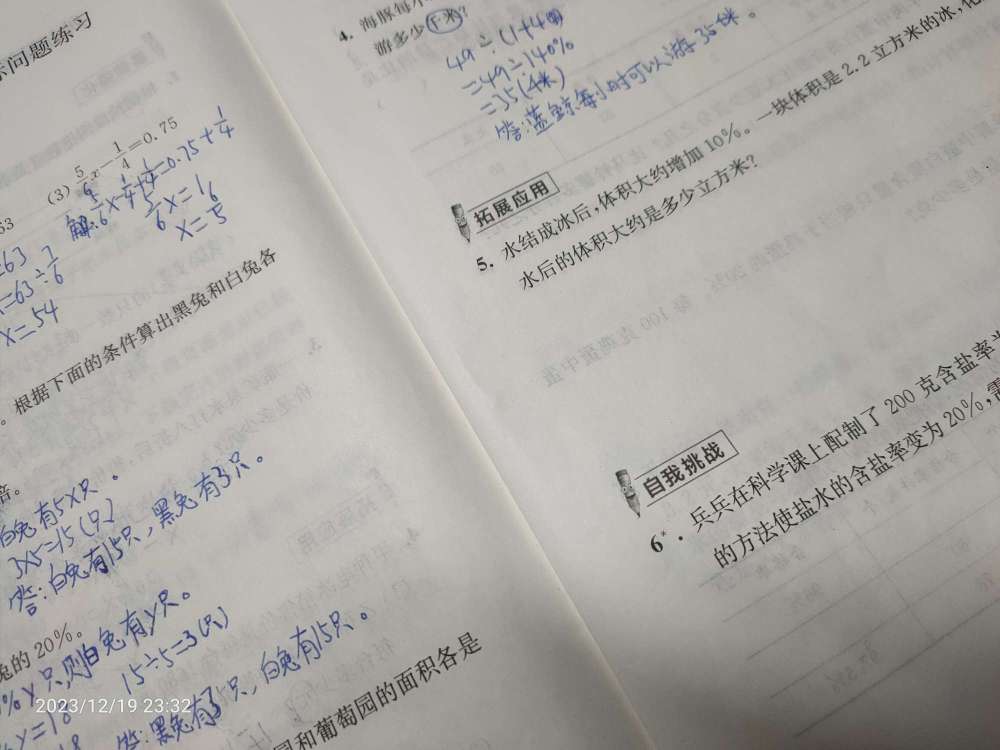 示问题练习
(3) 5/6 x - 1/4 = 0.75
解: 5/6 x - 1/4 + 1/4 = 0.75 + 1/4
5/6 x = 1 6
x = 5
63
=63
=63÷7/6
x=54
。根据下面的条件算出黑兔和白兔各
倍。
白兔有5x只。
3×5=15(只)
答:白兔有15只,黑兔有3只。
兔的 20%。
%y只,则白兔有y只。
15÷5=3(只)
y=18
答:黑兔有3只,白兔有15只。
18
园和葡萄园的面积各是
2023/12/19 23:32
4. 海豚每小
游多少千米?
49÷(1+40
=49÷140%
=35(千米)
答:蓝鲸每小时可以游35千米。
拓展应用
5. 水结成冰后,体积大约增加 10%。一块体积是 2.2 立方米的冰,化
水后的体积大约是多少立方米?
自我挑战
6*. 兵兵在科学课上配制了 200 克含盐率为
的方法使盐水的含盐率变为 20%,需